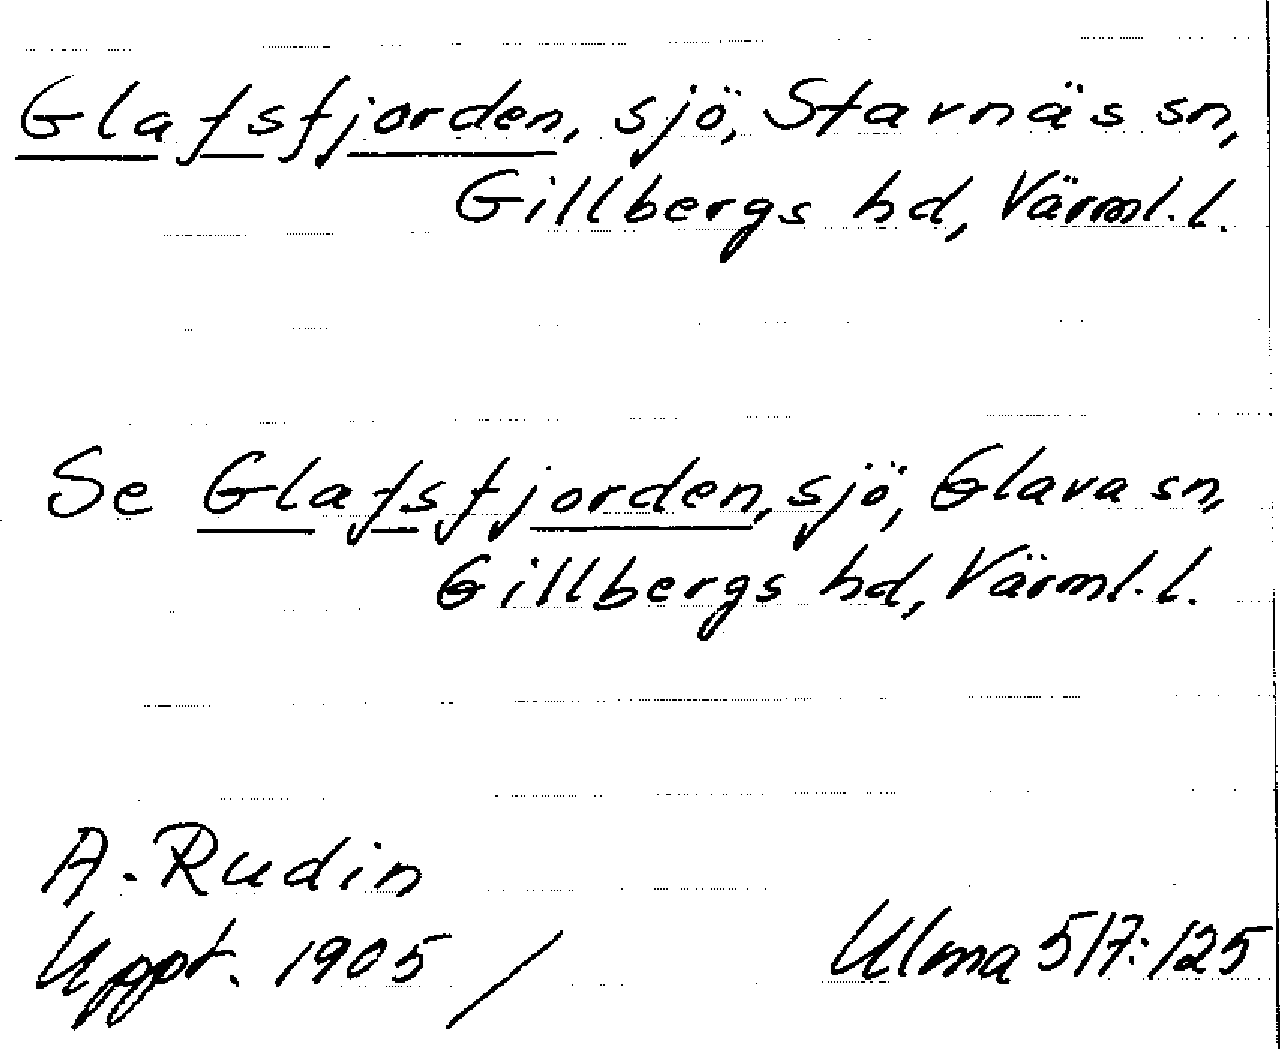 Glafsfjorden, sjö, Stavnäs sn,
Gillbergs hd, Värml. l.
Se Glafsfjorden, sjö, Glava sn,
Gillbergs hd, Värml. l.
A. Rudin
Uppt. 1905 /
Ulma 517:125